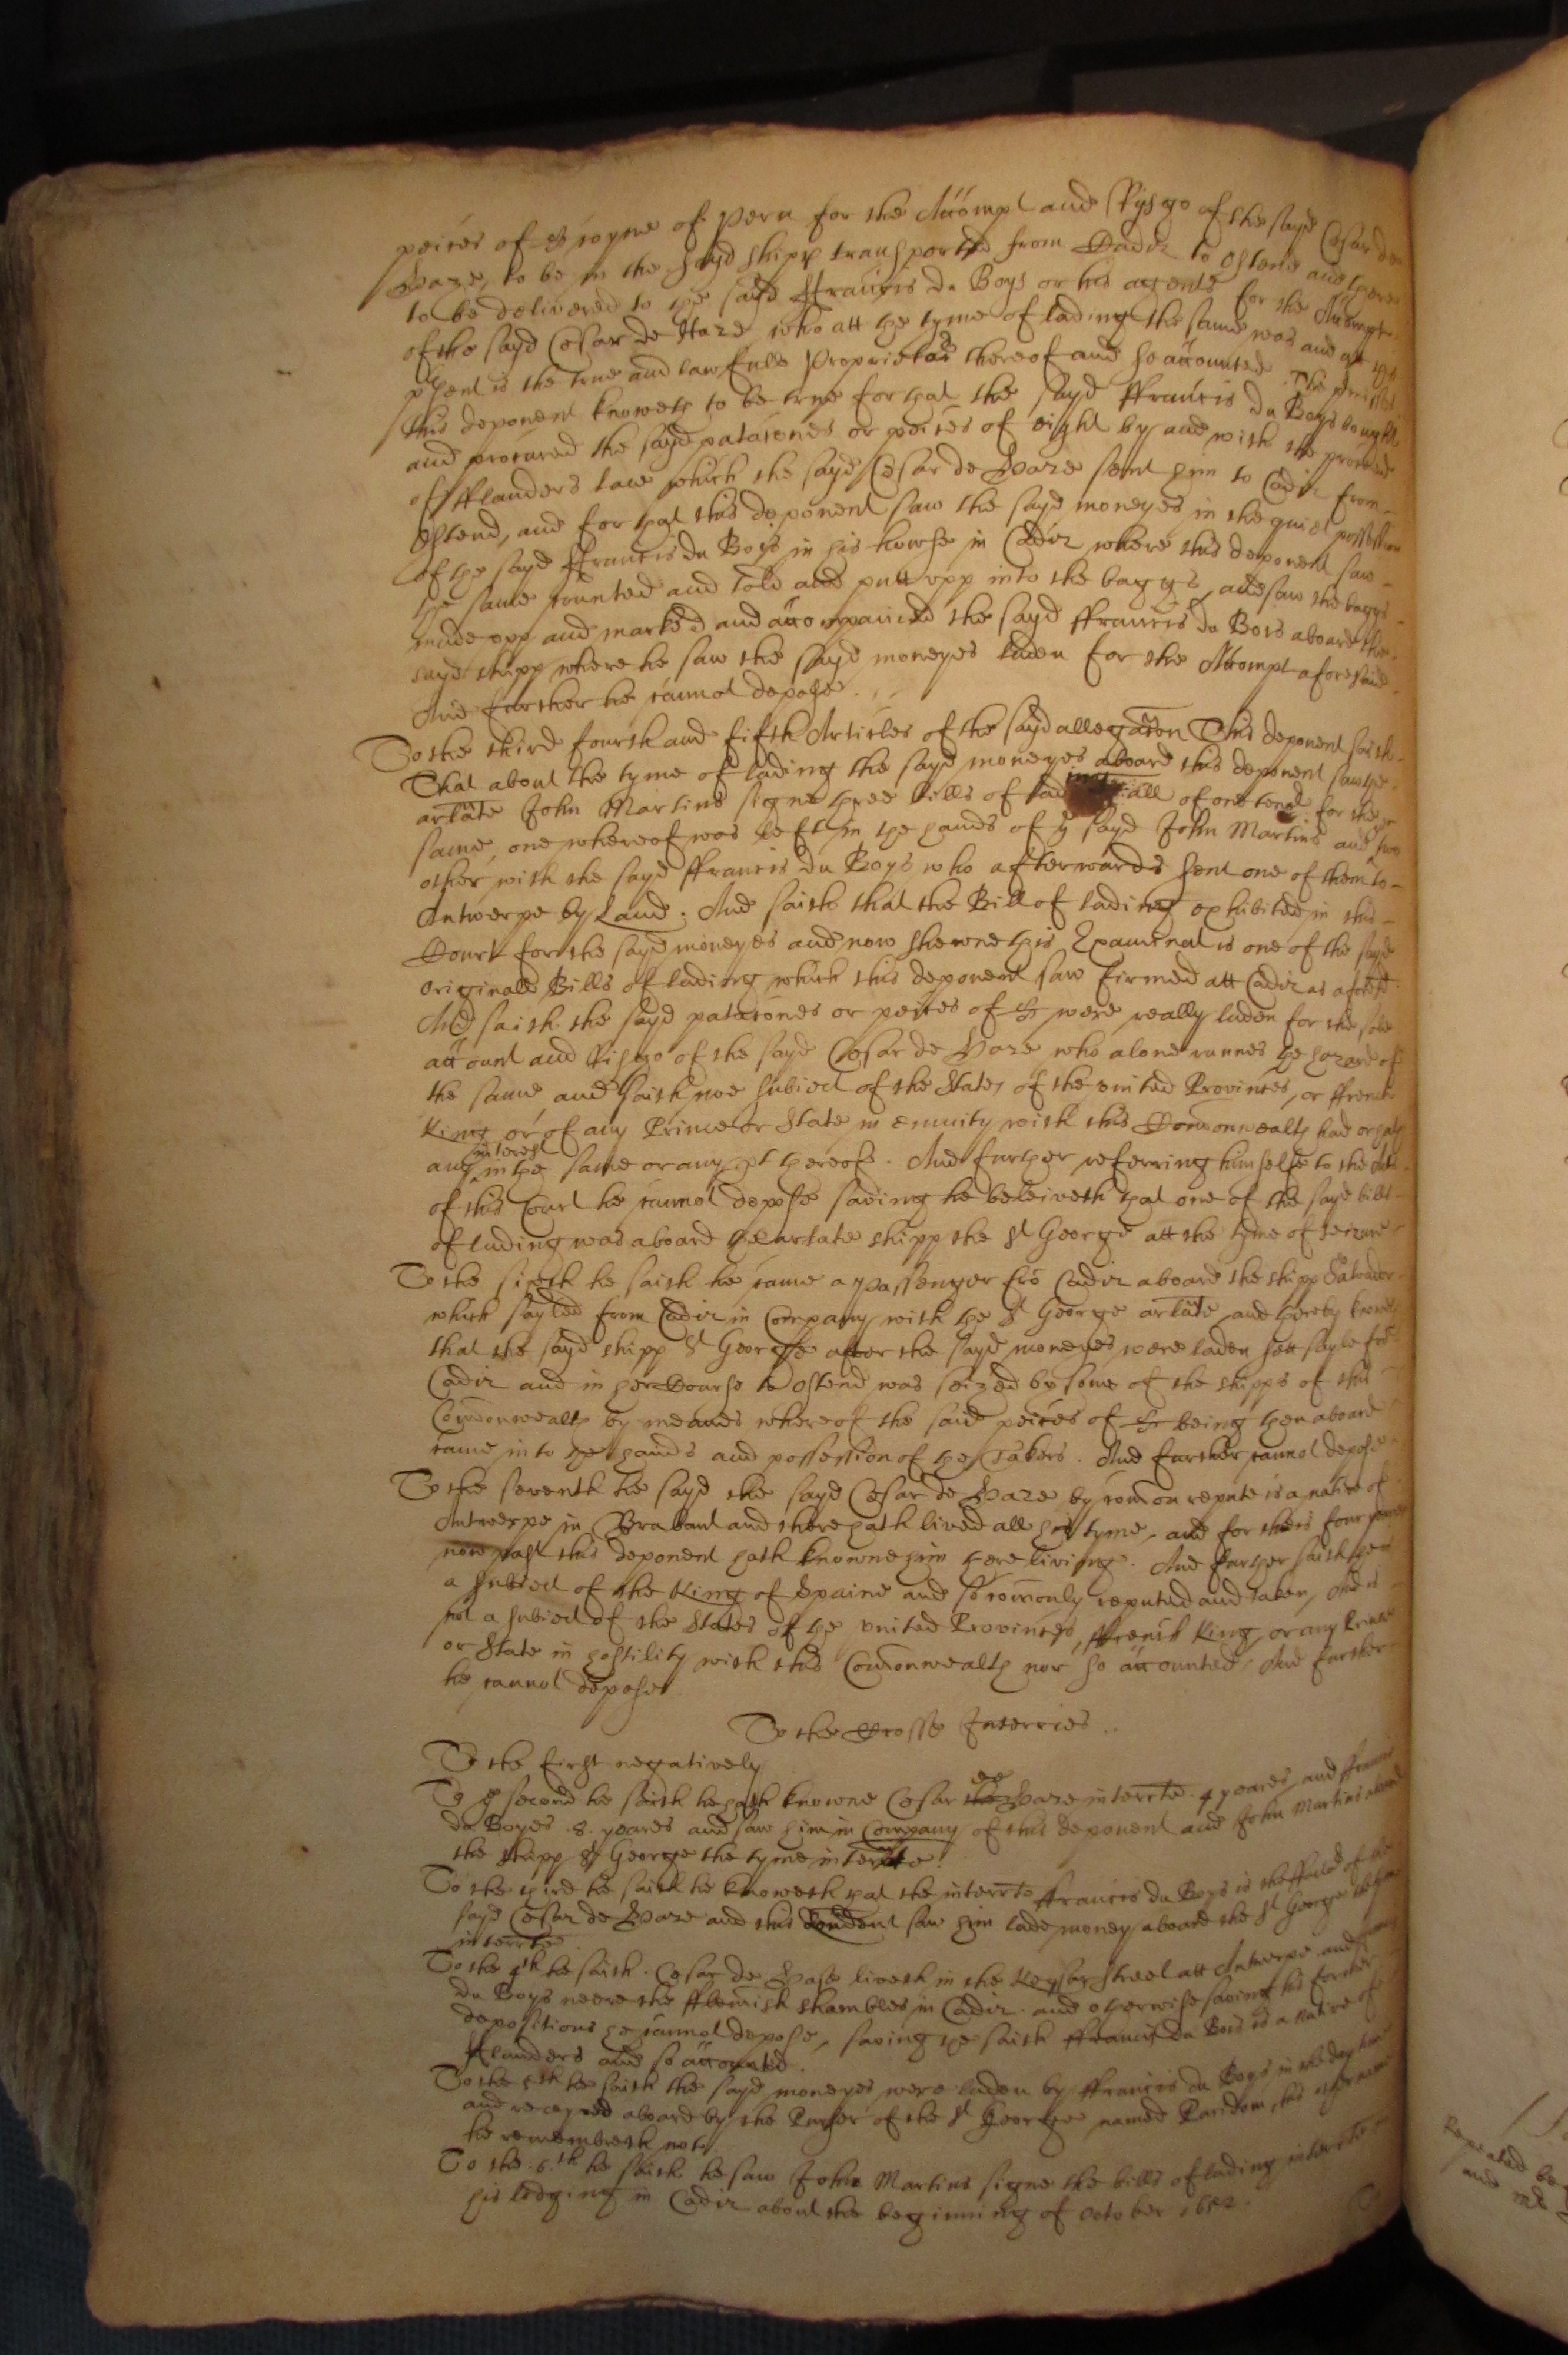 peices of 8 coyne of Peru for the Accompt and Rysgo of the sayd Cesar de
Haze, to be in the sayd shipp transported from Cadiz to Ostend and there
to be delivered to the sayd ffrancis du Boys or his agents for the Accompt
of the sayd Cesar de Haze who att the tyme of lading the same was and att
present is the true and lawfull Proprietor thereof and so accounted. The
this deponent knoweth to be true for that the sayd ffrancis du Boys bought
and procured the sayd patacones or peices of eight by and with the proceed
of fflanders lace which the sayd Cesar de Haze sent him to Cadiz from
Ostend, and for that this deponent saw the sayd moneyes in the quiet possession
of the sayd ffrancis du Bois in his howse in Cadiz where this deponent saw
the same counted and told and putt upp into the baggs, and saw the baggs
made upp and marked and accompanied the sayd ffrancis du Bois aboard the
sayd shipp where he saw the sayd moneyes laden for the Accompt aforesaid
And further he cannot depose.
To the third fourth and fifth Articles of the sayd allegacon This deponent saith
That about the tyme of lading the sayd moneyes aboard this deponent saw the
arlate John Martins signe three bills of lading all of one tenor for the
same, one whereof was left in the hands of ye sayd John Martins and two
other with the sayd ffrancis du Boys who afterwards sent one of them to
Antwerpe by Land. And saith that the Bill of lading exhibited in this
Court for the sayd moneyes and now shewne this Examinat is one of the sayd
originall Bills of lading which this deponent saw firmed att Cadiz as aforesd
And saith the sayd patacones or peices of 8 were really laden for the sole
account and Risgo of the sayd Cesar de Haze who alone runnes the hazard of
the same and saith noe subiect of the States of the united Provinces, or ffrench
King or of any Prince or State in enmity with this Comonwealth had or hath
any interest in the same or any pt thereof. And further referring himselfe to the
of this Court he cannot depose saving he beleiveth that one of the sayd bills
of lading was aboard the arlate shipp the St George att the tyme of seizure
To the sixth he saith he came a Passenger fro Cadiz aboard the shipp Salvador
which sayled from Cadiz in Company with the St George arlate, and thereby knoweth
that the sayd shipp St George after the sayd moneyes were laden sett sayle fro
Cadiz and in her Course to Ostend was seized by some of the shipps of this
Comonwealth by meanes whereof the said peices of 8 being then aboard
came into the hands and possession of the Takers. And further cannot depose
To the seventh he sayd the sayd Cesar de Haze by comon repute is a native of
Antwerpe in Brabant and there hath lived all his tyme, and for theis four yeares
now past this deponent hath knowne him there living. And further saith he is
a subiect of the King of Spaine and so comonly reputed and taken, And is
not a subiect of the States of the united Provinces, ffrench King, or any Prince
or State in hostility with this Comonwealth nor so accounted. And further
he cannot depose
To the Crosse Interries.
To the first negatively
To ye second he saith he hath knowne Cesar de Haze interrte. 4 yeares, and ffrancis
du Boyes .8. yeares and saw him in Company of this deponent and John Martins aboard
the shipp St George the tyme interrte.
To the third he saith he knoweth that the interrte ffrancis du Boys is the ffactor of the
sayd Cesar de Haze and this deponent saw him lade money aboard the St George the tyme
interrte
To the 4th he saith. Cesar de Hase liveth in the Keysar street att Antwerpe and ffrancis
du Boys neere the fflemish shambles in Cadiz. and otherwise saving his former
depositions he cannot depose, saving he saith ffrancis du Bois is a native of
fflanders and so accounted.
To the 5th he saith the sayd moneyes were laden by ffrancis du Boys in the day time
and receyved aboard by the Purser of the St George named Random, his other name
he remembreth not.
To the .6.th he saith he saw John Martins signe the bills of lading interrte in
his lodging in Cadiz about the beginning of October 1652.
Repeated
and